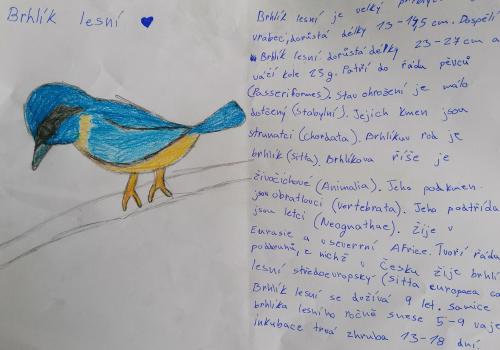 Brhlík lesní
Brhlík lesní je velký
vrabec, dorůstá délky 13-14,5 cm. Dospělí
Brhlík lesní dorůstá délky 23-27 cm a
váží kole 25 g. Patří do řádu pěvců
(Passeriformes). Stav ohrožení je málo
dotčený (Stabylní). Jejich kmen jsou
strunatci (Chordata). Brhlíkuv rod je
brhlík (Sitta). Brhlíkova říše je
živočichové (Animalia). Jeho podkmen
jsou obratlovci (Vertebrata). Jeho podtřída
jsou letci (Neognathae). Žije v
Eurasie a v severní Africe. Tvoří řádu
poddruhů, z nichž v Česku žije brhlí
lesní středoevropský (Sitta europaea ca
Brhlík lesní se dožívá 9 let. Samice
brhlíka lesního ročně snese 5-9 vaje
inkubace trvá zhruba 13-18 dní.